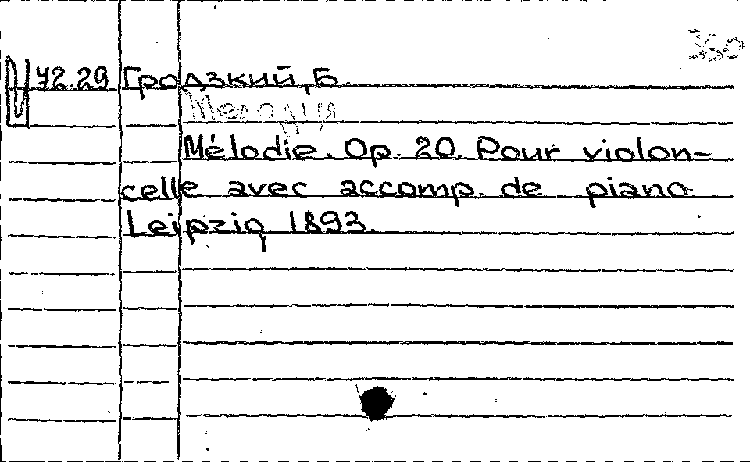 350
72.29 Гродзкий, Б.
Мелодия
Mélodie. Op. 20. Pour violon-
celle avec accomp. de piano
Leipzig 1893.